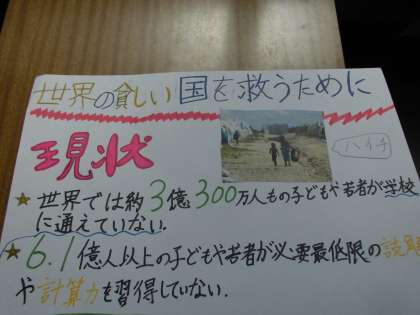 世界の貧しい国を救うために
現状
ハイチ
★世界では約3億300万人もの子どもや若者が学校
に通えていない。
★6.1億人以上の子どもや若者が必要最低限の読解
や計算力を習得していない.